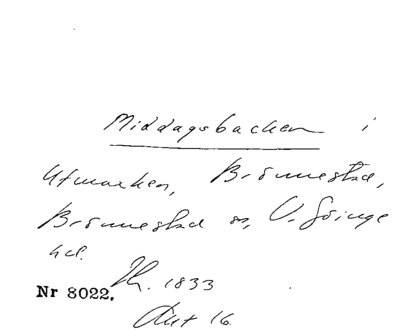 Middagsbacken i
Utmarken, Brönnestad,
Brönnestad sn, V. Göinge
hd. Sk. 1833
Nr 8022.
Akt 16.